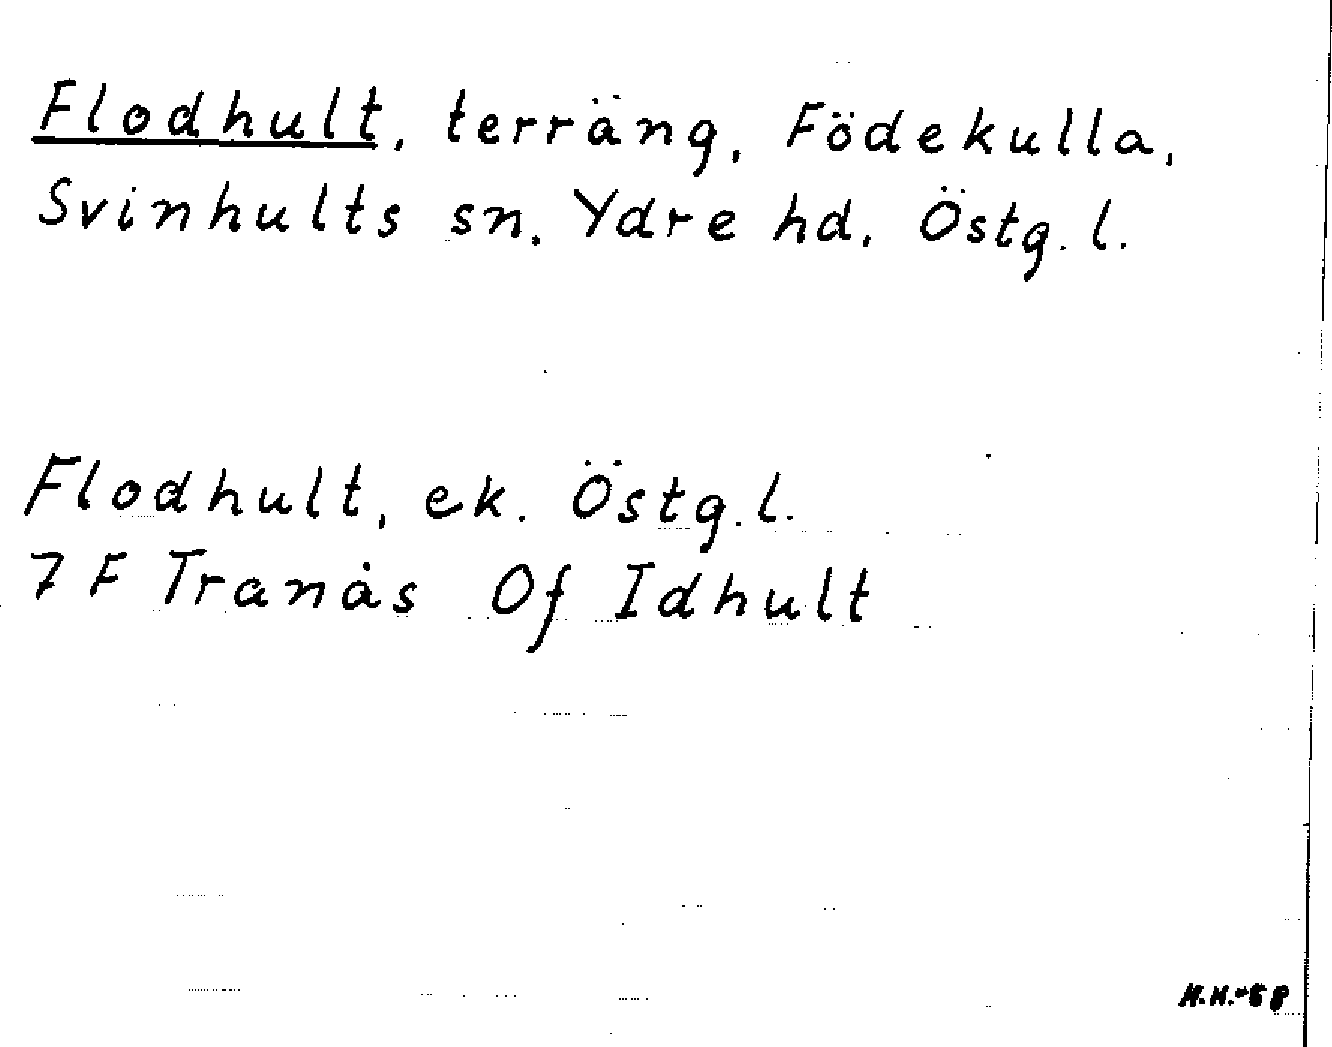 Flodhult, terräng, Födekulla,
Svinhults sn, Ydre hd, Östg. l.
Flodhult, ek. Östg. l.
7 F Tranås Of Idhult